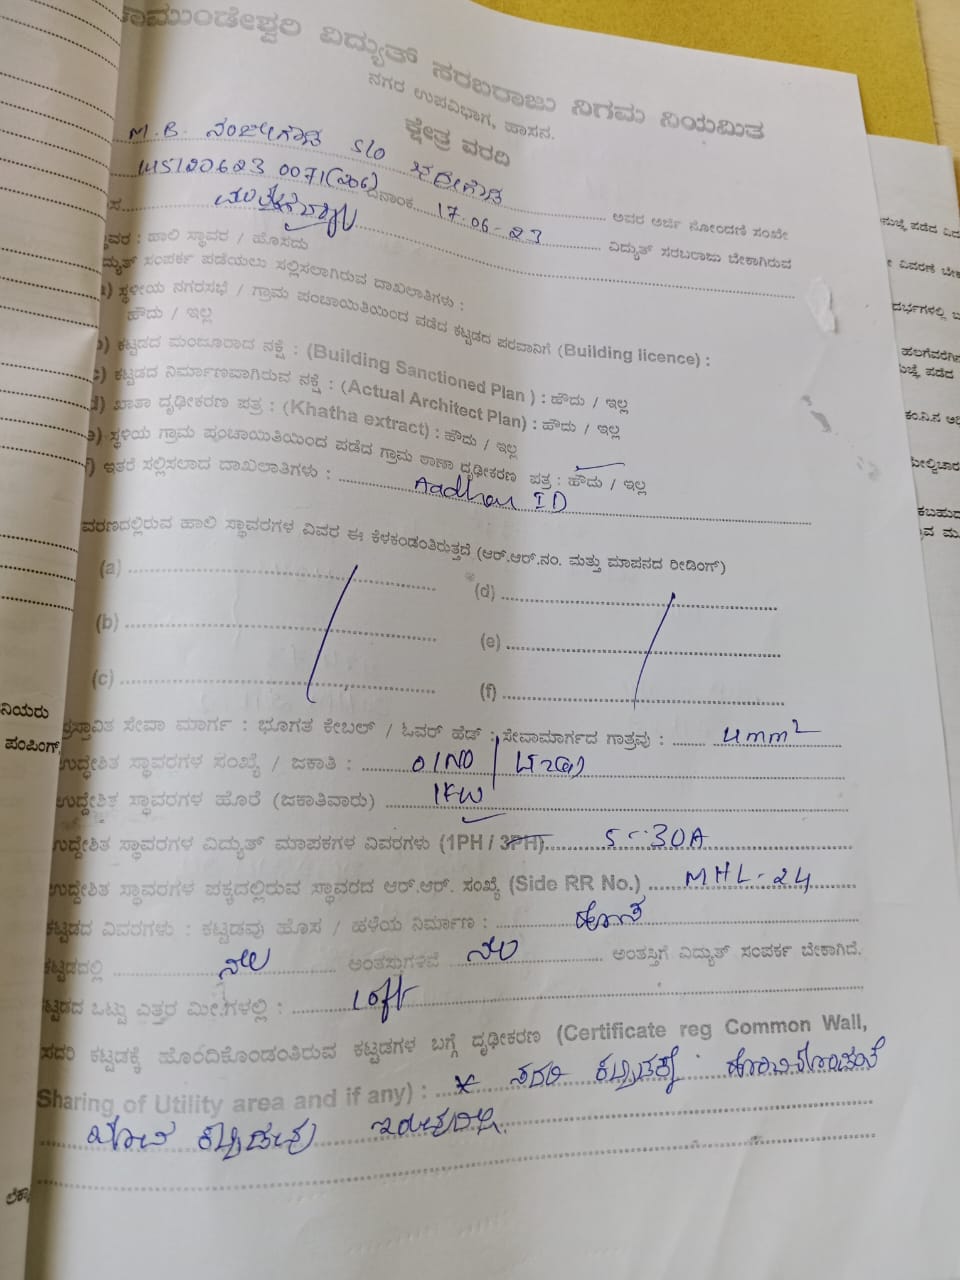 ಚಾಮುಂಡೇಶ್ವರಿ ವಿದ್ಯುತ್ ಸರಬರಾಜು ನಿಗಮ ನಿಯಮಿತ
ನಗರ ಉಪವಿಭಾಗ, ಹಾಸನ.
ಕ್ಷೇತ್ರ ವರದಿ
M.B. ನಂಜೇಗೌಡ S/o ಅವರ ಅರ್ಜಿ ನೋಂದಣಿ ಸಂಖ್ಯೆ
0071(206) ದಿನಾಂಕ 17.06.23 ವಿದ್ಯುತ್ ಸರಬರಾಜು ಬೇಕಾಗಿರುವ
ಸ್ಥಾವರ : ಹಾಲಿ ಸ್ಥಾವರ / ಹೊಸದು
ವಿದ್ಯುತ್ ಸಂಪರ್ಕ ಪಡೆಯಲು ಸಲ್ಲಿಸಲಾಗಿರುವ ದಾಖಲಾತಿಗಳು :
a) ಸ್ಥಳೀಯ ನಗರಸಭೆ / ಗ್ರಾಮ ಪಂಚಾಯಿತಿಯಿಂದ ಪಡೆದ ಕಟ್ಟಡದ ಪರವಾನಿಗೆ (Building licence) :
ಹೌದು / ಇಲ್ಲ
b) ಕಟ್ಟಡದ ಮಂಜೂರಾದ ನಕ್ಷೆ : (Building Sanctioned Plan ) : ಹೌದು / ಇಲ್ಲ
c) ಕಟ್ಟಡದ ನಿರ್ಮಾಣವಾಗಿರುವ ನಕ್ಷೆ : (Actual Architect Plan) : ಹೌದು / ಇಲ್ಲ
d) ಖಾತಾ ದೃಢೀಕರಣ ಪತ್ರ : (Khatha extract) : ಹೌದು / ಇಲ್ಲ
e) ಸ್ಥಳಿಯ ಗ್ರಾಮ ಪಂಚಾಯಿತಿಯಿಂದ ಪಡೆದ ಗ್ರಾಮ ಠಾಣಾ ದೃಢೀಕರಣ ಪತ್ರ : ಹೌದು / ಇಲ್ಲ
f) ಇತರೆ ಸಲ್ಲಿಸಲಾದ ದಾಖಲಾತಿಗಳು : Aadhar ID
ಆವರಣದಲ್ಲಿರುವ ಹಾಲಿ ಸ್ಥಾವರಗಳ ವಿವರ ಈ ಕೆಳಕಂಡಂತಿರುತ್ತದೆ (ಆರ್.ಆರ್.ನಂ. ಮತ್ತು ಮಾಪನದ ರೀಡಿಂಗ್)
(a) (d)
(b) (e)
(c) (f)
ಪ್ರಸ್ತಾವಿತ ಸೇವಾ ಮಾರ್ಗ : ಭೂಗತ ಕೇಬಲ್ / ಓವರ್ ಹೆಡ್ : ಸೇವಾಮಾರ್ಗದ ಗಾತ್ರವು : 4mm²
ಉದ್ದೇಶಿತ ಸ್ಥಾವರಗಳ ಸಂಖ್ಯೆ / ಜಕಾತಿ : 01NO
ಉದ್ದೇಶಿತ ಸ್ಥಾವರಗಳ ಹೊರೆ (ಜಕಾತಿವಾರು) 1KW
ಉದ್ದೇಶಿತ ಸ್ಥಾವರಗಳ ವಿದ್ಯುತ್ ಮಾಪಕಗಳ ವಿವರಗಳು (1PH / 3PH) 5-30A
ಉದ್ದೇಶಿತ ಸ್ಥಾವರಗಳ ಪಕ್ಕದಲ್ಲಿರುವ ಸ್ಥಾವರದ ಆರ್.ಆರ್. ಸಂಖ್ಯೆ (Side RR No.) MHL-24
ಕಟ್ಟಡದ ವಿವರಗಳು : ಕಟ್ಟಡವು ಹೊಸ / ಹಳೆಯ ನಿರ್ಮಾಣ : ಹೊಸ
ಕಟ್ಟಡದಲ್ಲಿ ನೆಲ ಅಂತಸ್ತುಗಳಿವೆ ನೆಲ ಅಂತಸ್ತಿಗೆ ವಿದ್ಯುತ್ ಸಂಪರ್ಕ ಬೇಕಾಗಿದೆ.
ಕಟ್ಟಡದ ಒಟ್ಟು ಎತ್ತರ ಮೀ.ಗಳಲ್ಲಿ : 10ft
ಸದರಿ ಕಟ್ಟಡಕ್ಕೆ ಹೊಂದಿಕೊಂಡಂತಿರುವ ಕಟ್ಟಡಗಳ ಬಗ್ಗೆ ದೃಢೀಕರಣ (Certificate reg Common Wall,
Sharing of Utility area and if any) : * ಸದರಿ ಕಟ್ಟಡಕ್ಕೆ ಹೊಂದಿಕೊಂಡಂತೆ
ಯಾವ ಕಟ್ಟಡವು ಇರುವುದಿಲ್ಲ.